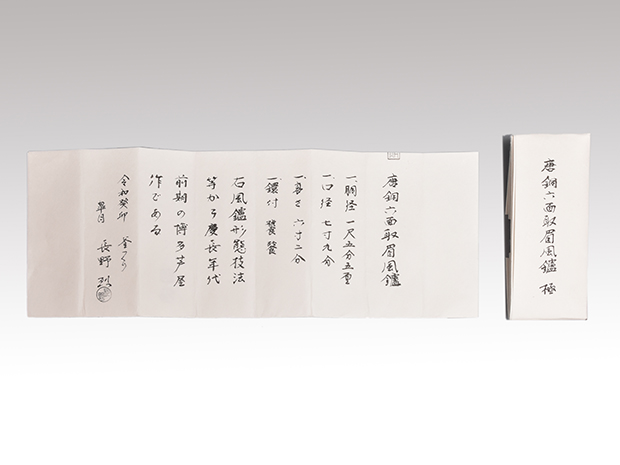 唐銅六面取眉風鑪
一、胴径 一尺五分五厘
一、口径 七寸九分
一、高さ 六寸二分
一、鐶付 饕餮
右風鑪形態技法
等から慶長年代
前期の博多芦屋
作である
令和癸卯 釜つくり
皐月 長野烈
唐銅六面取眉風鑪 極